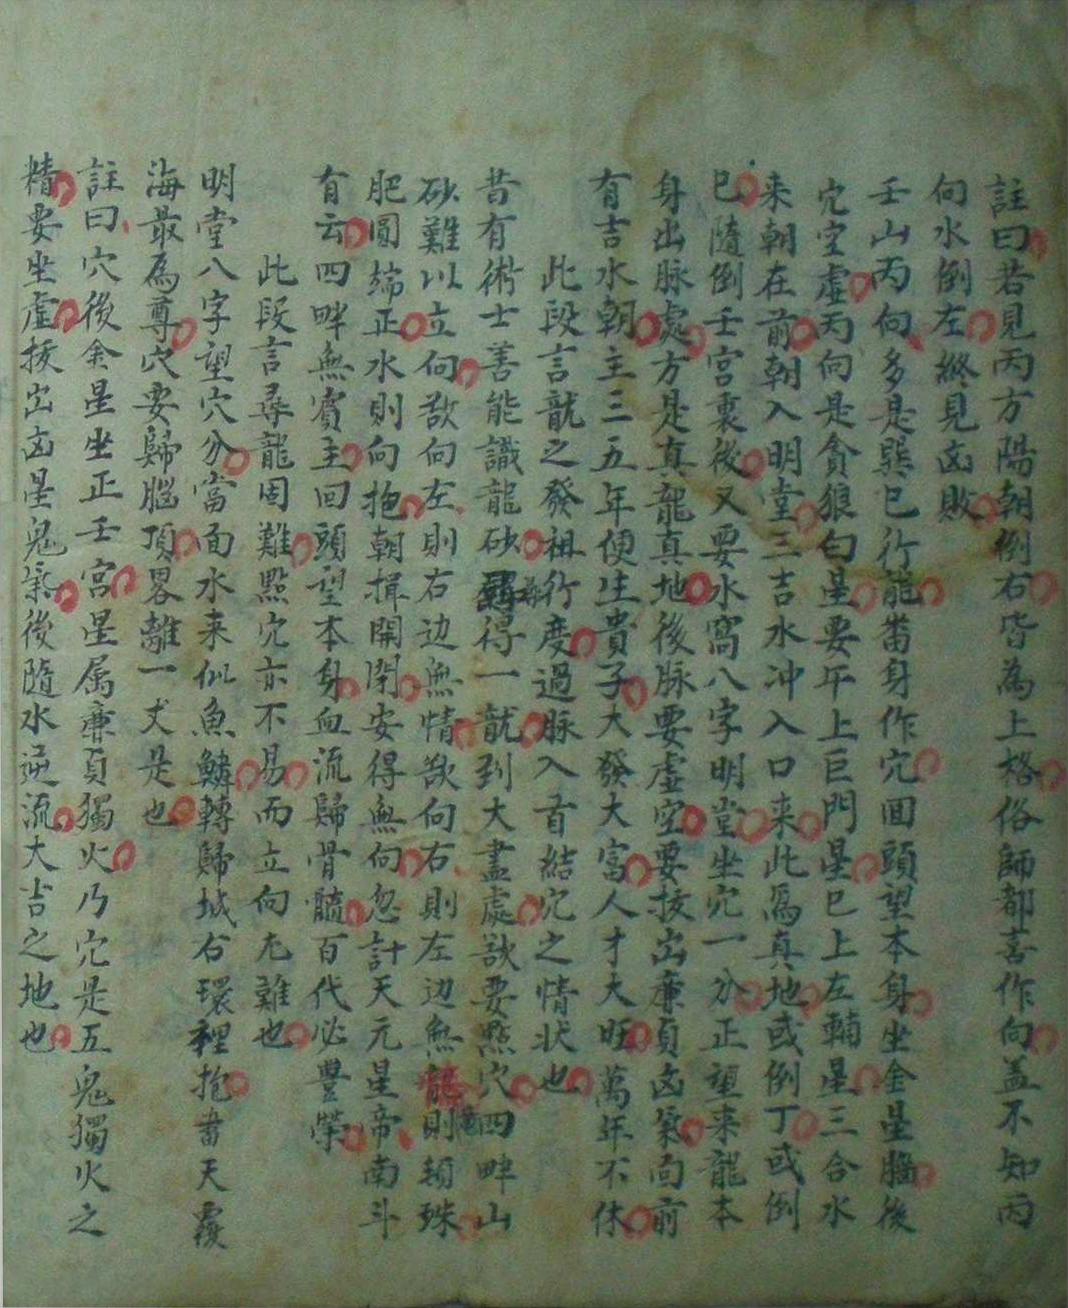 註曰若見丙方陽朝倒右皆為上格俗師都喜作向盖不知丙
向水倒左終見凶敗
壬山丙向多是巽巳行龍畨身作穴囬頭望本身坐金星腦後
穴空虛丙向是貪狼勾星要午上巨門星巳上左輔星三合水
来朝在前朝入明堂三吉水冲入口来此爲真地或倒丁或倒
巳隨倒壬宮裏後又要水窩八字明堂坐穴一分正望来龍本
身出脉處方是真龍真地後脉要虛空要接出廉貞凶氣向前
有吉水朝主三五年便生貴子大發大富人才大旺萬年不休
此段言龍之發祖行度過脉入首結穴之情状也
昔有術士善能識龍砂尋得一龍到大盡處欲要點穴四畔山
砂難以立向欲向左則右边無情欲向右則左边無龍則頓珠
肥圓端正水則向抱朝揖開閉安得無向忽計天元星帝南斗
有云四畔無賓主回頭望本身血流歸骨髓百代必豐榮
此段言尋龍固難點穴亦不易而立向尤難也
明堂八字望穴分當面水来似魚鱗轉歸城右環裡抱畨天覆
海最爲尊穴要歸腦頂畧離一丈是也
註曰穴後金星坐正壬宮星属廉貞獨火乃穴是五鬼獨火之
精要坐虛接出凶星鬼氣後隨水逆流大吉之地也